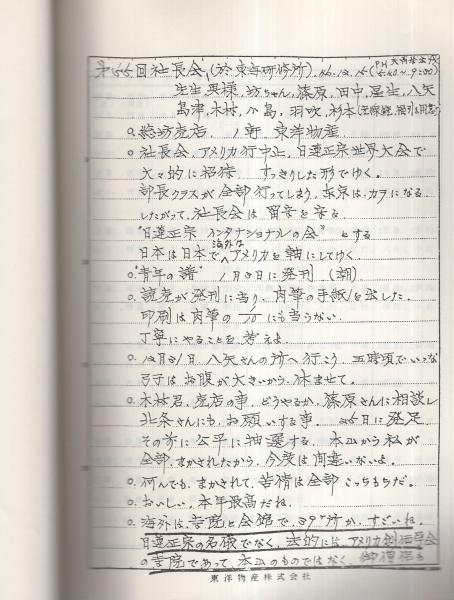 第55回社長会(於東海研修所)、46.12.15(PM 5:40〜9:00)
先生、奥様、坊ちゃん、篠原、田中、星生、八矢
島津、木村、小島、羽吹、杉本
o. 総坊売店、 東洋物産
o. 社長会、アメリカ行中止、日蓮正宗世界大会で
大々的に招待、すっきりした形でゆく。
部長クラスが全部行ってしまう、東京は、カラになる
したがって、社長会は留守を守る
"日蓮正宗インタナショナルの会" とする
日本は日本で、海外はアメリカを軸にしてゆく。
o. "青年の譜" 1月3日に発刊 (朝)
o. 読売が発刊に当り、肉筆の手紙を出した。
印刷は肉筆の1/10にも当らない。
丁寧にやることを考えよ
o. 12月31日、八矢さんの所へ行こう、五時頃でいいな
弓子はお腹が大きいから、休ませて。
o. 木村君、売店の事、どうやるか、篠原さんに相談し
北条さんにも、お願いする事。25日に発足
その前に公平に抽選する、本山から私が
全部、まかされたから、今度は間違いないよ。
o. 何んでも、まかされて、苦情は全部こっちもちだ。
o. おいしい、本年最高だね。
o. 海外は、寺院と会館で、39ヶ所か、すごいね。
日蓮正宗の名儀でなく、法的には、アメリカ創価学会
の寺院であって、本山のものではなく、御僧侶も
東洋物産株式会社